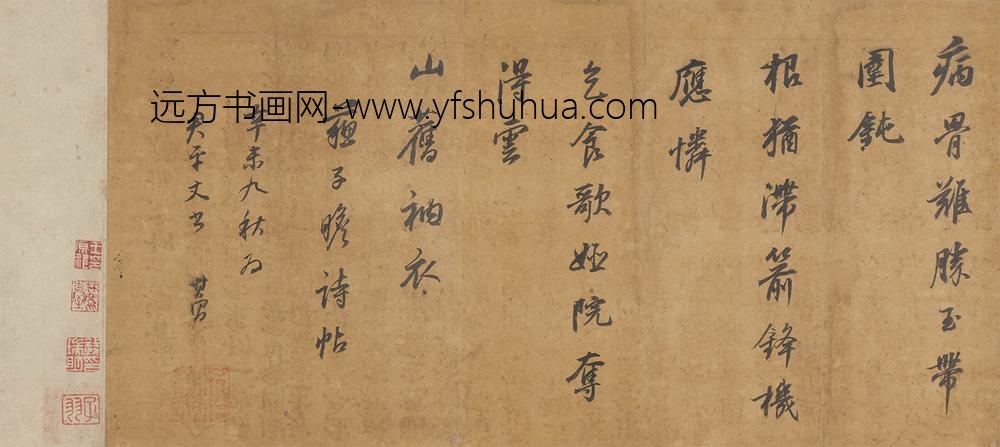 病骨難勝玉帶
圍鈍
根猶滯箭鋒機
應憐
乞食歌姬院奪
得雲
山舊衲衣
蘇子瞻詩帖
辛未九秋為
君平丈書
远方书画网-www.yfshuhua.com